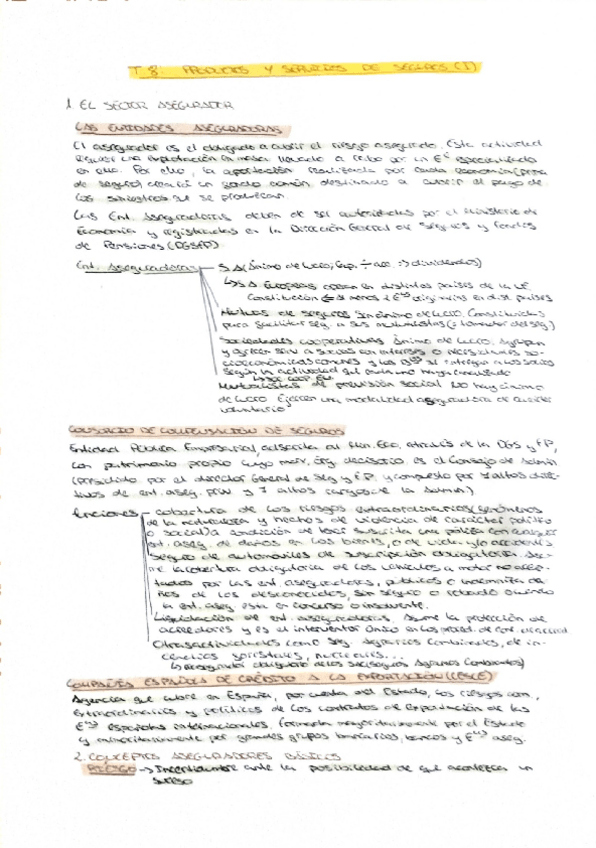 T.8: PRODUCTOS Y SERVICIOS DE SEGUROS (I)
1. EL SECTOR ASEGURADOR
LAS ENTIDADES ASEGURADORAS
El asegurador es el obligado a cubrir el riesgo asegurado. Esta actividad
requiere una explotación en masa llevada a cabo por un Eª especializada
en ello. Por ello, la aportación realizada por cada economía (prima
de seguro) creará un fondo común destinado a cubrir el pago de
los siniestros que se produzcan.
Las Ent. Aseguradoras deben de ser autorizadas por el Ministerio de
Economía y registradas en la Dirección General de Seguros y Fondos
de Pensiones (DGSFP)
Ent. Aseguradoras S.A (Ánimo de lucro; Cap. ÷ acc. → dividendos)
↳ S.A EUROPEAS operan en distintos países de la UE.
Constitución al menos 2 Eªˢ originarias en dist. países
Mutuas de seguros Sin ánimo de lucro. Constituidas
para facilitar seg. a sus mutualistas (= tomador del seg)
Sociedades cooperativas Ánimo de lucro. Agrupan
y ofrecen serv a socios con intereses o necesidades so-
cioeconómicas comunes y los se entregan a los socios
según la actividad que cada uno haya realizado
Mutualistas de previsión social No hay ánimo
de lucro Ejercen una modalidad aseguradora de carácter
voluntario
CONSORCIO DE COMPENSACIÓN DE SEGUROS
Entidad Pública Empresarial, adscrita al Min. Eco, a través de la DGS y FP,
con patrimonio propio cuyo máx. órg. decisorio es el Consejo de admin
(presidido por el director General de Seg y F.P y compuesto por 7 altos direc-
tivos de ent. aseg. priv y 7 altos cargos de la admin)
Funciones - cobertura de los riesgos extraordinarios (fenómenos
de la naturaleza y hechos de violencia de carácter político
o social) a condición de tener suscrita una póliza con cualquier
ent. aseg. de daños en los bienes, o de vida y/o accidentes
Seguro de automóviles de suscripción obligatoria. Asu-
me la cobertura obligatoria de los vehículos a motor no acep-
tados por las ent. aseguradoras, públicos e indemniza da-
ños de los desconocidos, sin seguro o robado o cuando
la ent. aseg está en concurso o insolvente.
Liquidación de ent. aseguradoras. Asume la protección de
acreedores y es el interventor único en los proced. de
Otras actividades como Seg. Agrarios Combinados, de in-
cendios forestales, nucleares...
↳ reasegurador obligatorio de los Seguros Agrarios Combinados)
COMPAÑÍA ESPAÑOLA DE CRÉDITO A LA EXPORTACIÓN (CESCE)
Agencia que cubre en España, por cuenta del Estado, los riesgos com,
extraordinarios y políticos de los contratos de Exportación de las
Eªˢ españolas internacionales, formada mayoritariamente por el Estado
y minoritariamente por grandes grupos bancarios, bancos y Eªˢ aseg.
2. CONCEPTOS ASEGURADORES BÁSICOS
RIESGO → Incertidumbre ante la posibilidad de que acontezca un
suceso